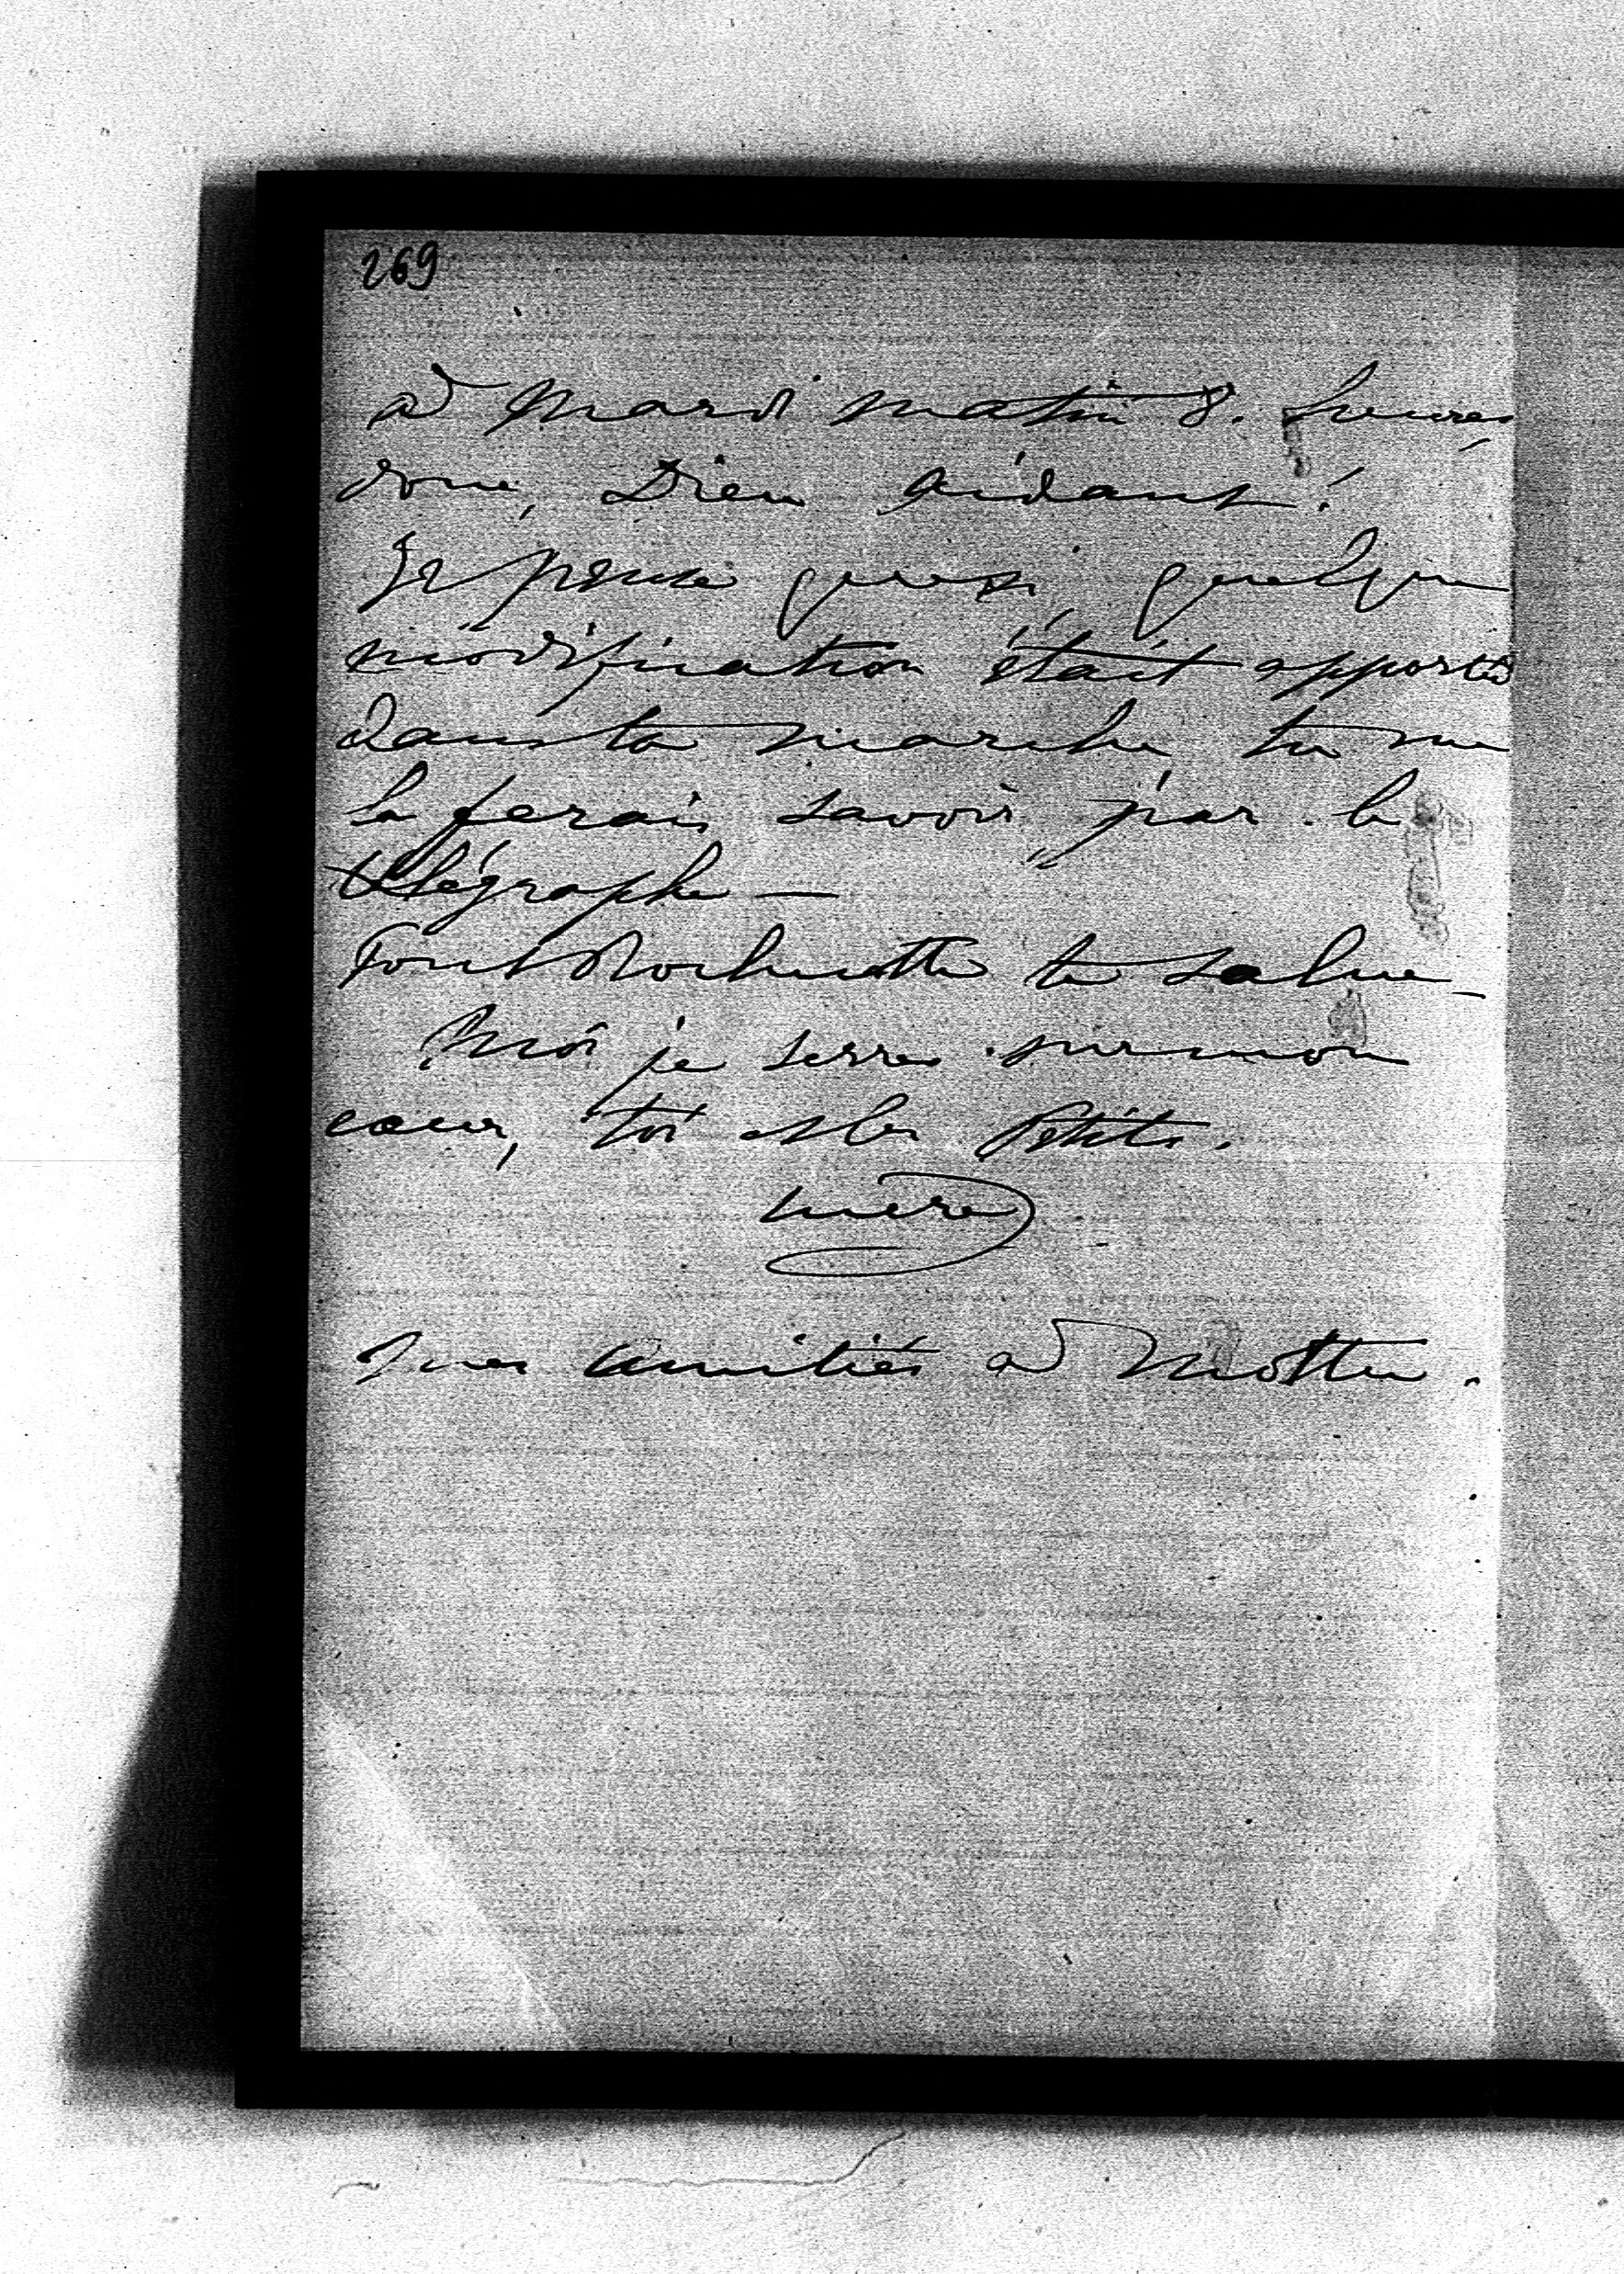 269
à Mardi matin 8. heures,
donc, Dieu aidant!
Je pense que si, quelque
modification était apportée
dans ta marche tu me
le ferais savoir par le
télégraphe —
Tout Rochecotte te salue —
Moi je serre sur mon
cœur, toi et les Petits.
mère
Mes amitiés à Motteu.